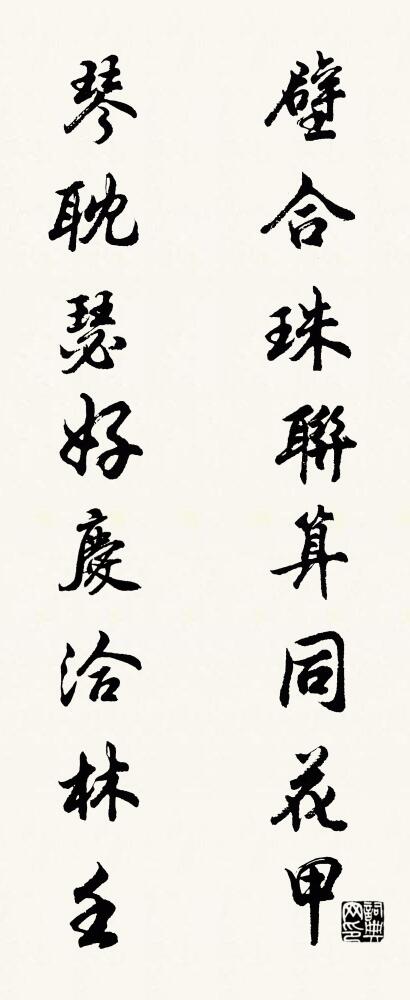 璧合珠聯算同花甲
琴耽瑟好慶洽林壬
詞典网印